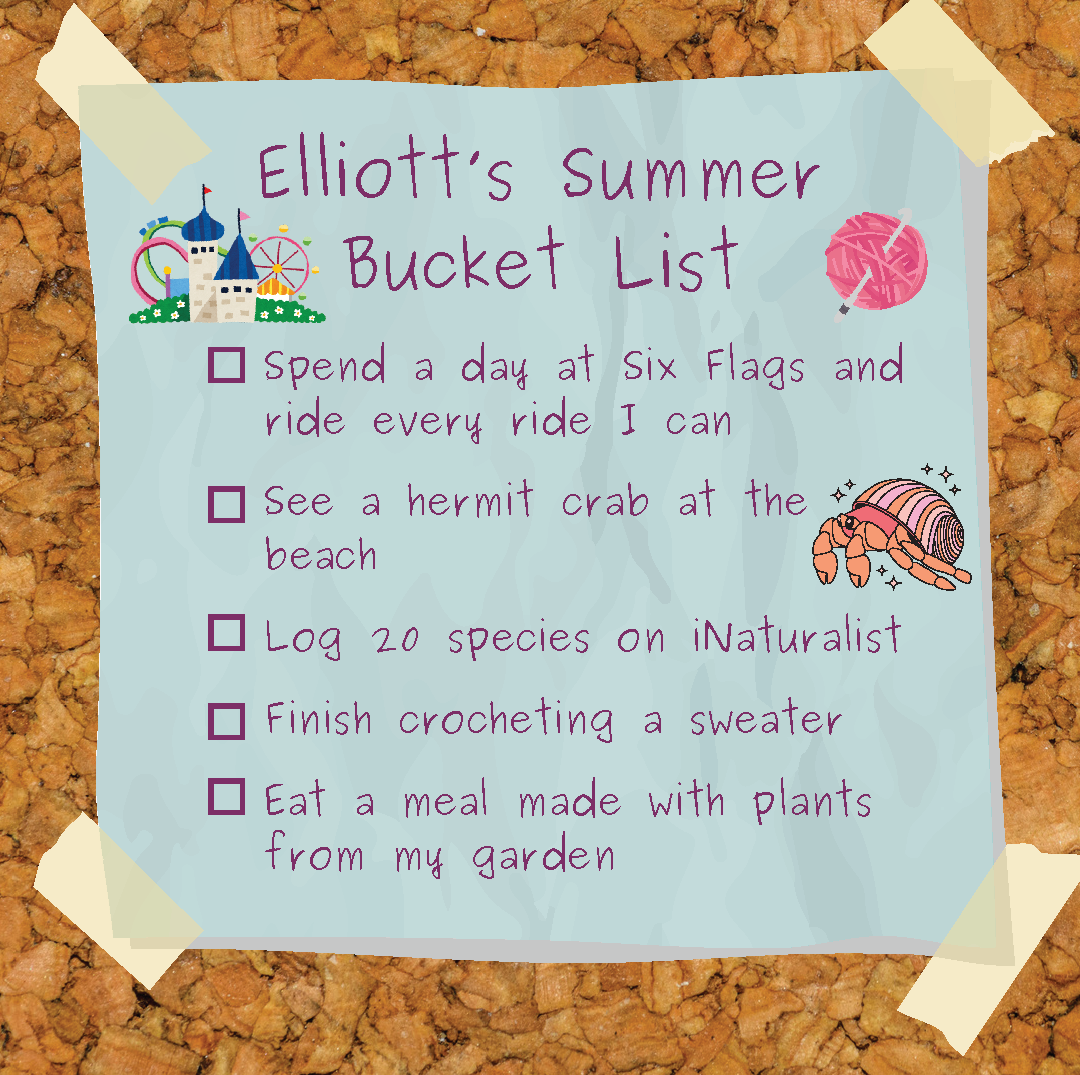 Elliott's Summer
Bucket List
Spend a day at Six Flags and
ride every ride I can
See a hermit crab at the
beach
Log 20 species on iNaturalist
Finish crocheting a sweater
Eat a meal made with plants
from my garden